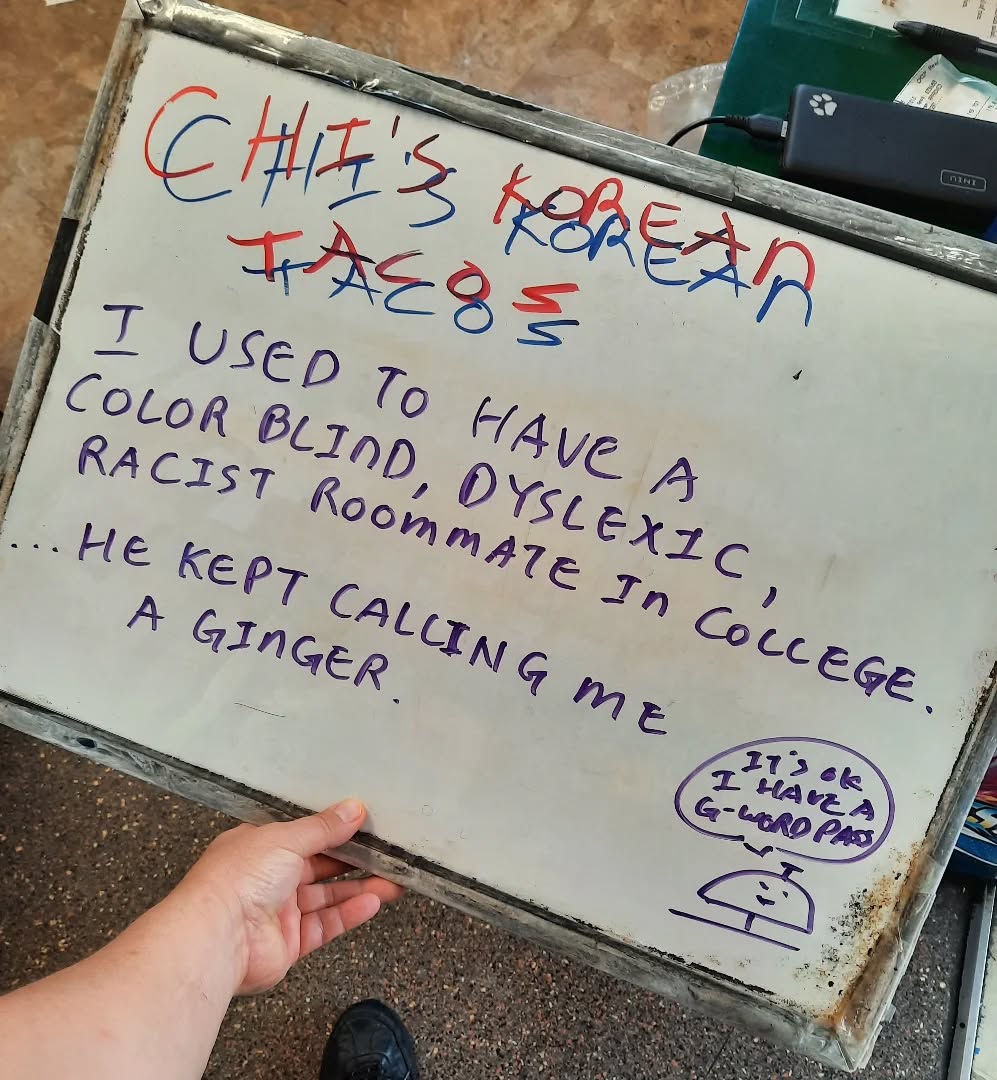 CHI'S KOREAN
TACOS
I USED TO HAVE A
COLOR BLIND, DYSLEXIC,
RACIST ROOMMATE IN COLLEGE.
... HE KEPT CALLING ME
A GINGER.
IT'S OK
I HAVE A
G-WORD PASS
INIU